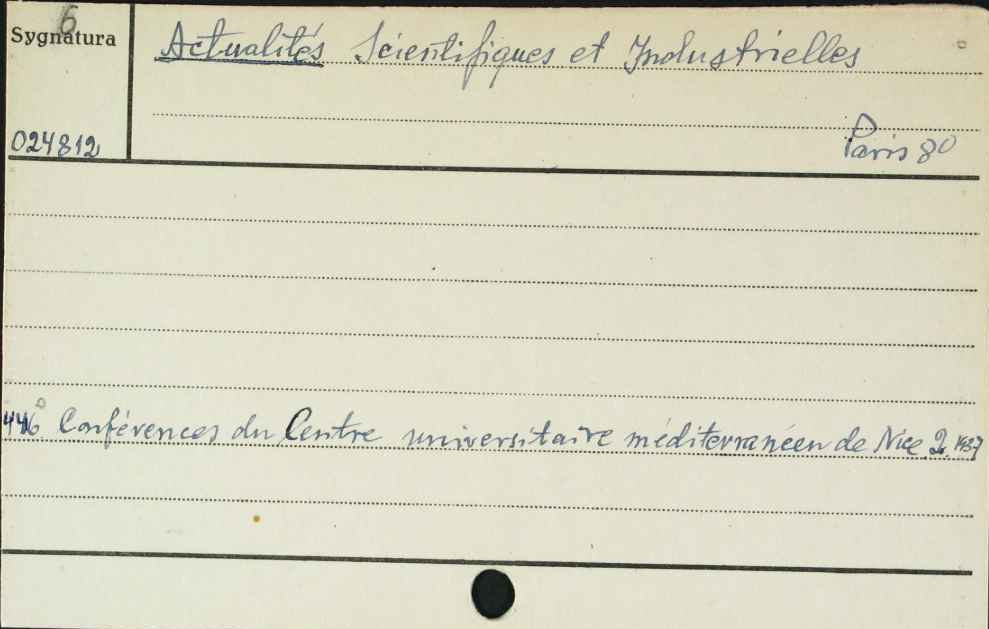 6
Sygnatura
Actualités Scientifiques et Industrielles
024812
Paris 8°
446° Conférences du Centre universitaire méditerranéen de Nice 2. 1937